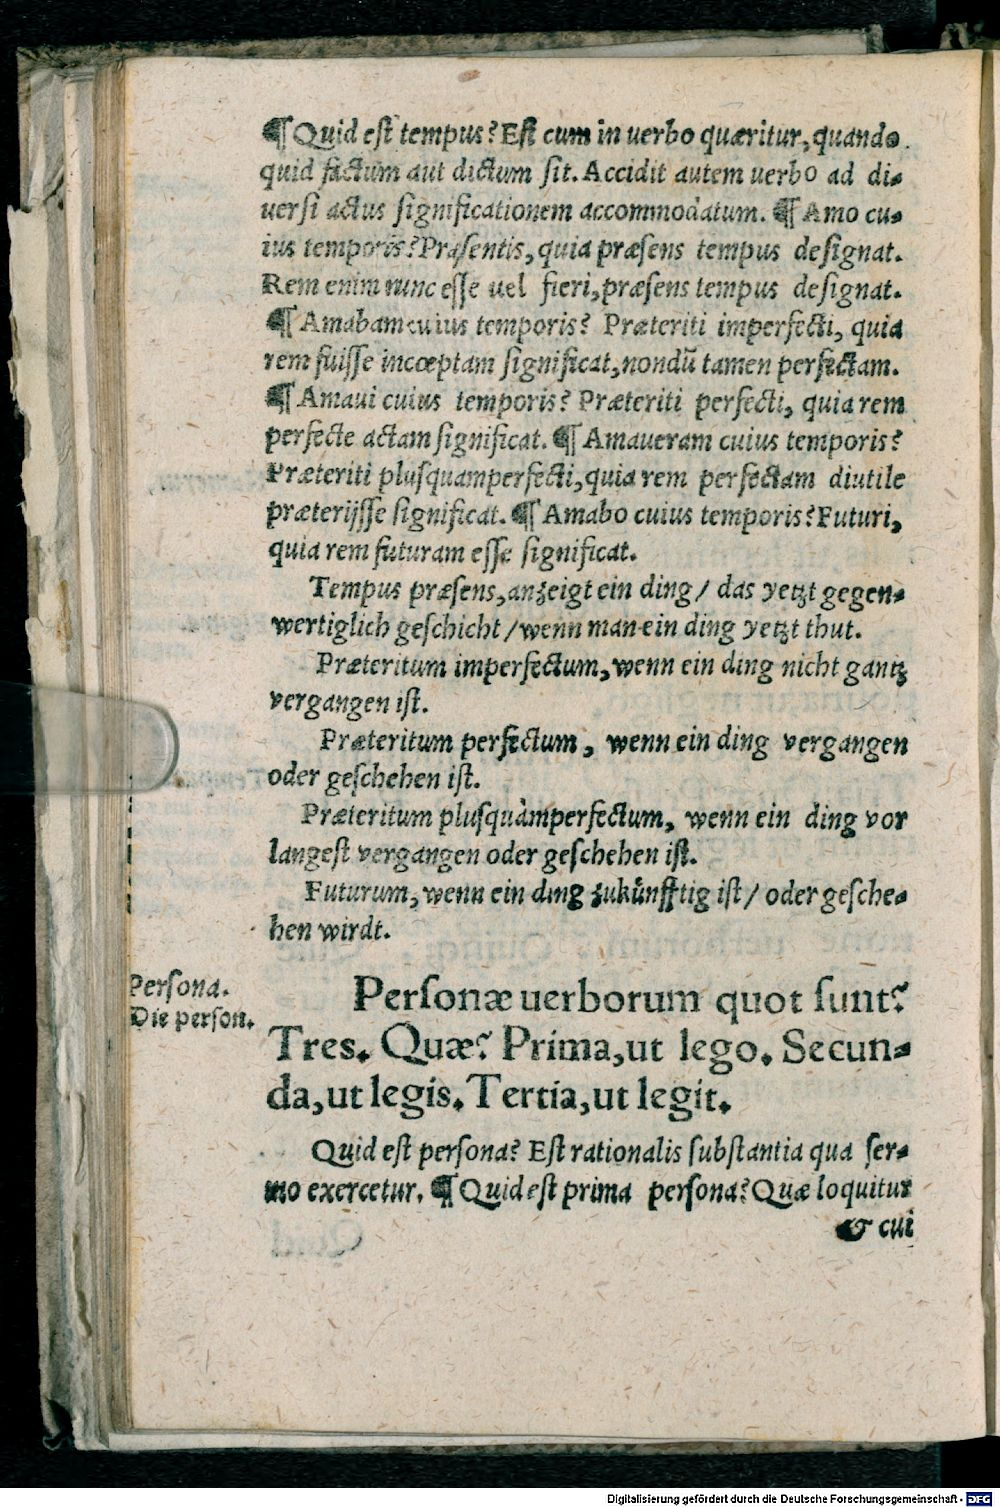 ¶ Quid est tempus? Est cum in uerbo quæritur, quando
quid factum aut dictum sit. Accidit autem uerbo ad di-
uersi actus significationem accommodatum. ¶ Amo cu-
ius temporis? Præsentis, quia præsens tempus designat.
Rem enim nunc esse uel fieri, præsens tempus designat.
¶ Amabam cuius temporis? Præteriti imperfecti, quia
rem fuisse incœptam significat, nondũ tamen perfectam.
¶ Amaui cuius temporis? Præteriti perfecti, quia rem
perfecte actam significat. ¶ Amaueram cuius temporis?
Præteriti plusquamperfecti, quia rem perfectam diutile
præterijsse significat. ¶ Amabo cuius temporis? Futuri,
quia rem futuram esse significat.
Tempus præsens, anzeigt ein ding / das yetzt gegen-
wertiglich geschicht / wenn man ein ding yetzt thut.
Præteritum imperfectum, wenn ein ding nicht gantz
vergangen ist.
Præteritum perfectum, wenn ein ding vergangen
oder geschehen ist.
Præteritum plusquàmperfectum, wenn ein ding vor
langest vergangen oder geschehen ist.
Futurum, wenn ein ding zukünfftig ist / oder gesche-
hen wirdt.
Persona.
Die person.
Personæ uerborum quot sunt?
Tres. Quæ? Prima, ut lego. Secun-
da, ut legis. Tertia, ut legit.
Quid est persona? Est rationalis substantia qua ser-
mo exercetur. ¶ Quid est prima persona? Quæ loquitur
& cui
Digitalisierung gefördert durch die Deutsche Forschungsgemeinschaft - DFG